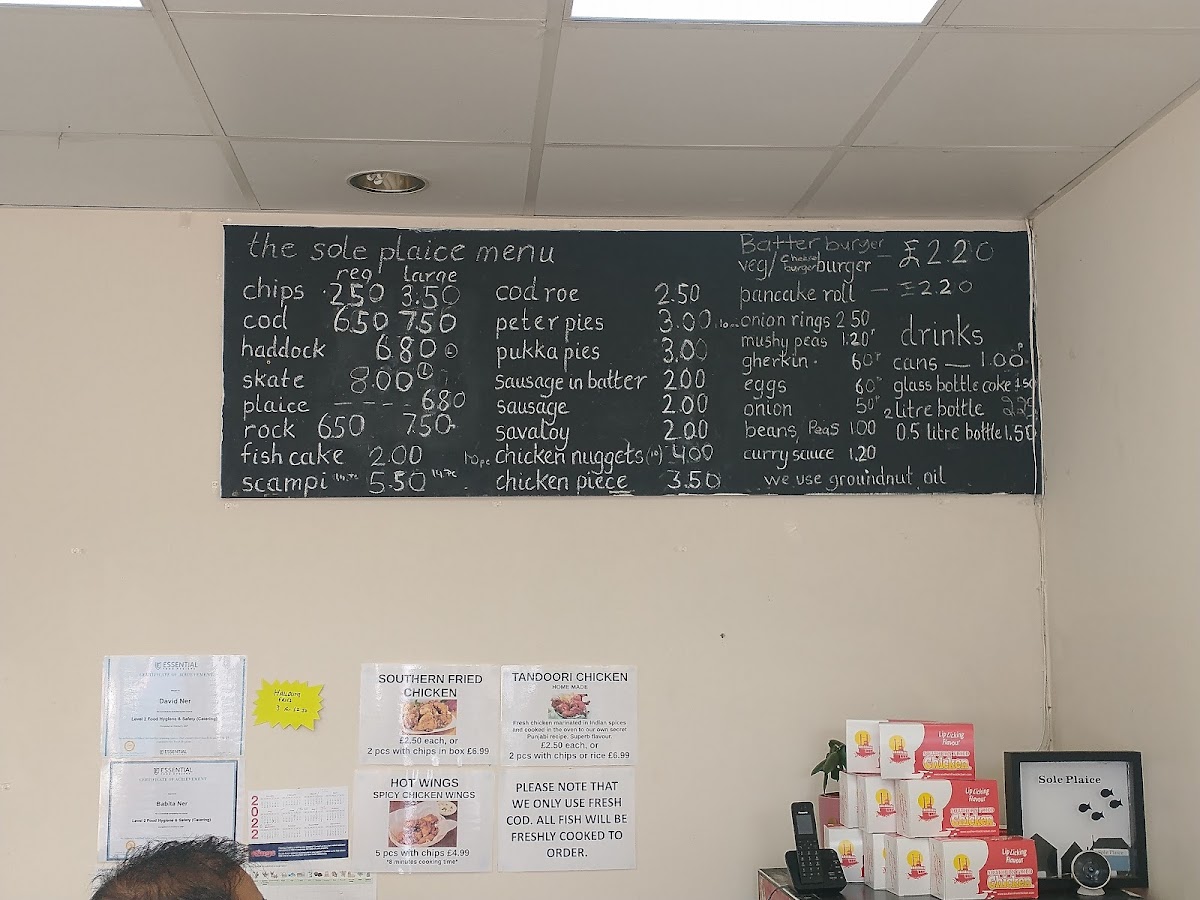 the sole plaice menu
reg large
chips 2.50 3.50
cod 6.50 7.50
haddock 6.80 L
skate 8.00 L
plaice ---- 6.80
rock 6.50 7.50
fish cake 2.00
scampi 5.50
cod roe 2.50
peter pies 3.00
pukka pies 3.00
sausage in batter 2.00
sausage 2.00
savaloy 2.00
10 pc chicken nuggets (10) 4.00
chicken piece 3.50
Batter burger
veg/ cheese burger burger - £2.20
pancake roll - £2.20
onion rings 2.50
mushy peas 1.20P
gherkin 60P
eggs 60P
onion 50P
beans, Peas 1.00
curry sauce 1.20
we use groundnut oil
drinks
cans — 1.00P
glass bottle coke 1.50
2 litre bottle 2.25
0.5 litre bottle 1.50
ESSENTIAL
CERTIFICATE OF ACHIEVEMENT
David Ner
Level 2 Food Hygiene & Safety (Catering)
ESSENTIAL
ESSENTIAL
CERTIFICATE OF ACHIEVEMENT
Babita Ner
Level 2 Food Hygiene & Safety (Catering)
2022
SOUTHERN FRIED
CHICKEN
£2.50 each, or
2 pcs with chips in box £6.99
TANDOORI CHICKEN
HOME MADE
Fresh chicken marinated in Indian spices
and cooked in the oven to our own secret
Punjabi recipe. Superb flavour.
£2.50 each, or
2 pcs with chips or rice £6.99
HOT WINGS
SPICY CHICKEN WINGS
5 pcs with chips £4.99
*8 minutes cooking time*
PLEASE NOTE THAT
WE ONLY USE FRESH
COD. ALL FISH WILL BE
FRESHLY COOKED TO
ORDER.
Lip Licking
Flavour
SOUTHERN FRIED
Chicken
Lip Licking
Flavour
SOUTHERN FRIED
Chicken
Lip Licking
Flavour
SOUTHERN FRIED
Chicken
Sole Plaice
Sole Plaice